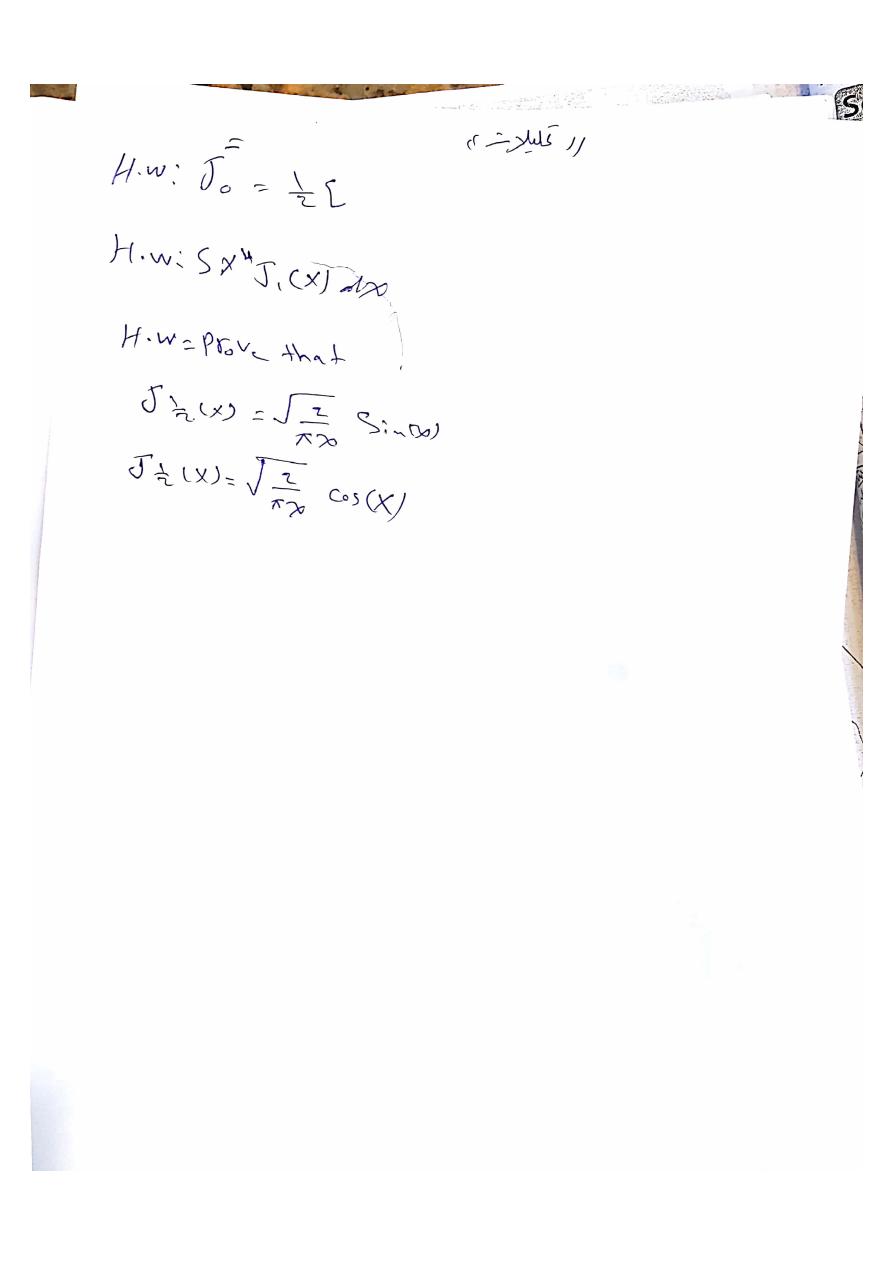 (( تحليلات ))
H.w: J₀'' = 1/2 [
H.w: ∫ x⁴ J₁(x) dx
H.w = Prove that
J 1/2 (x) = √(2/πx) Sin(x)
J 1/2 (x) = √(2/πx) cos(x)
S